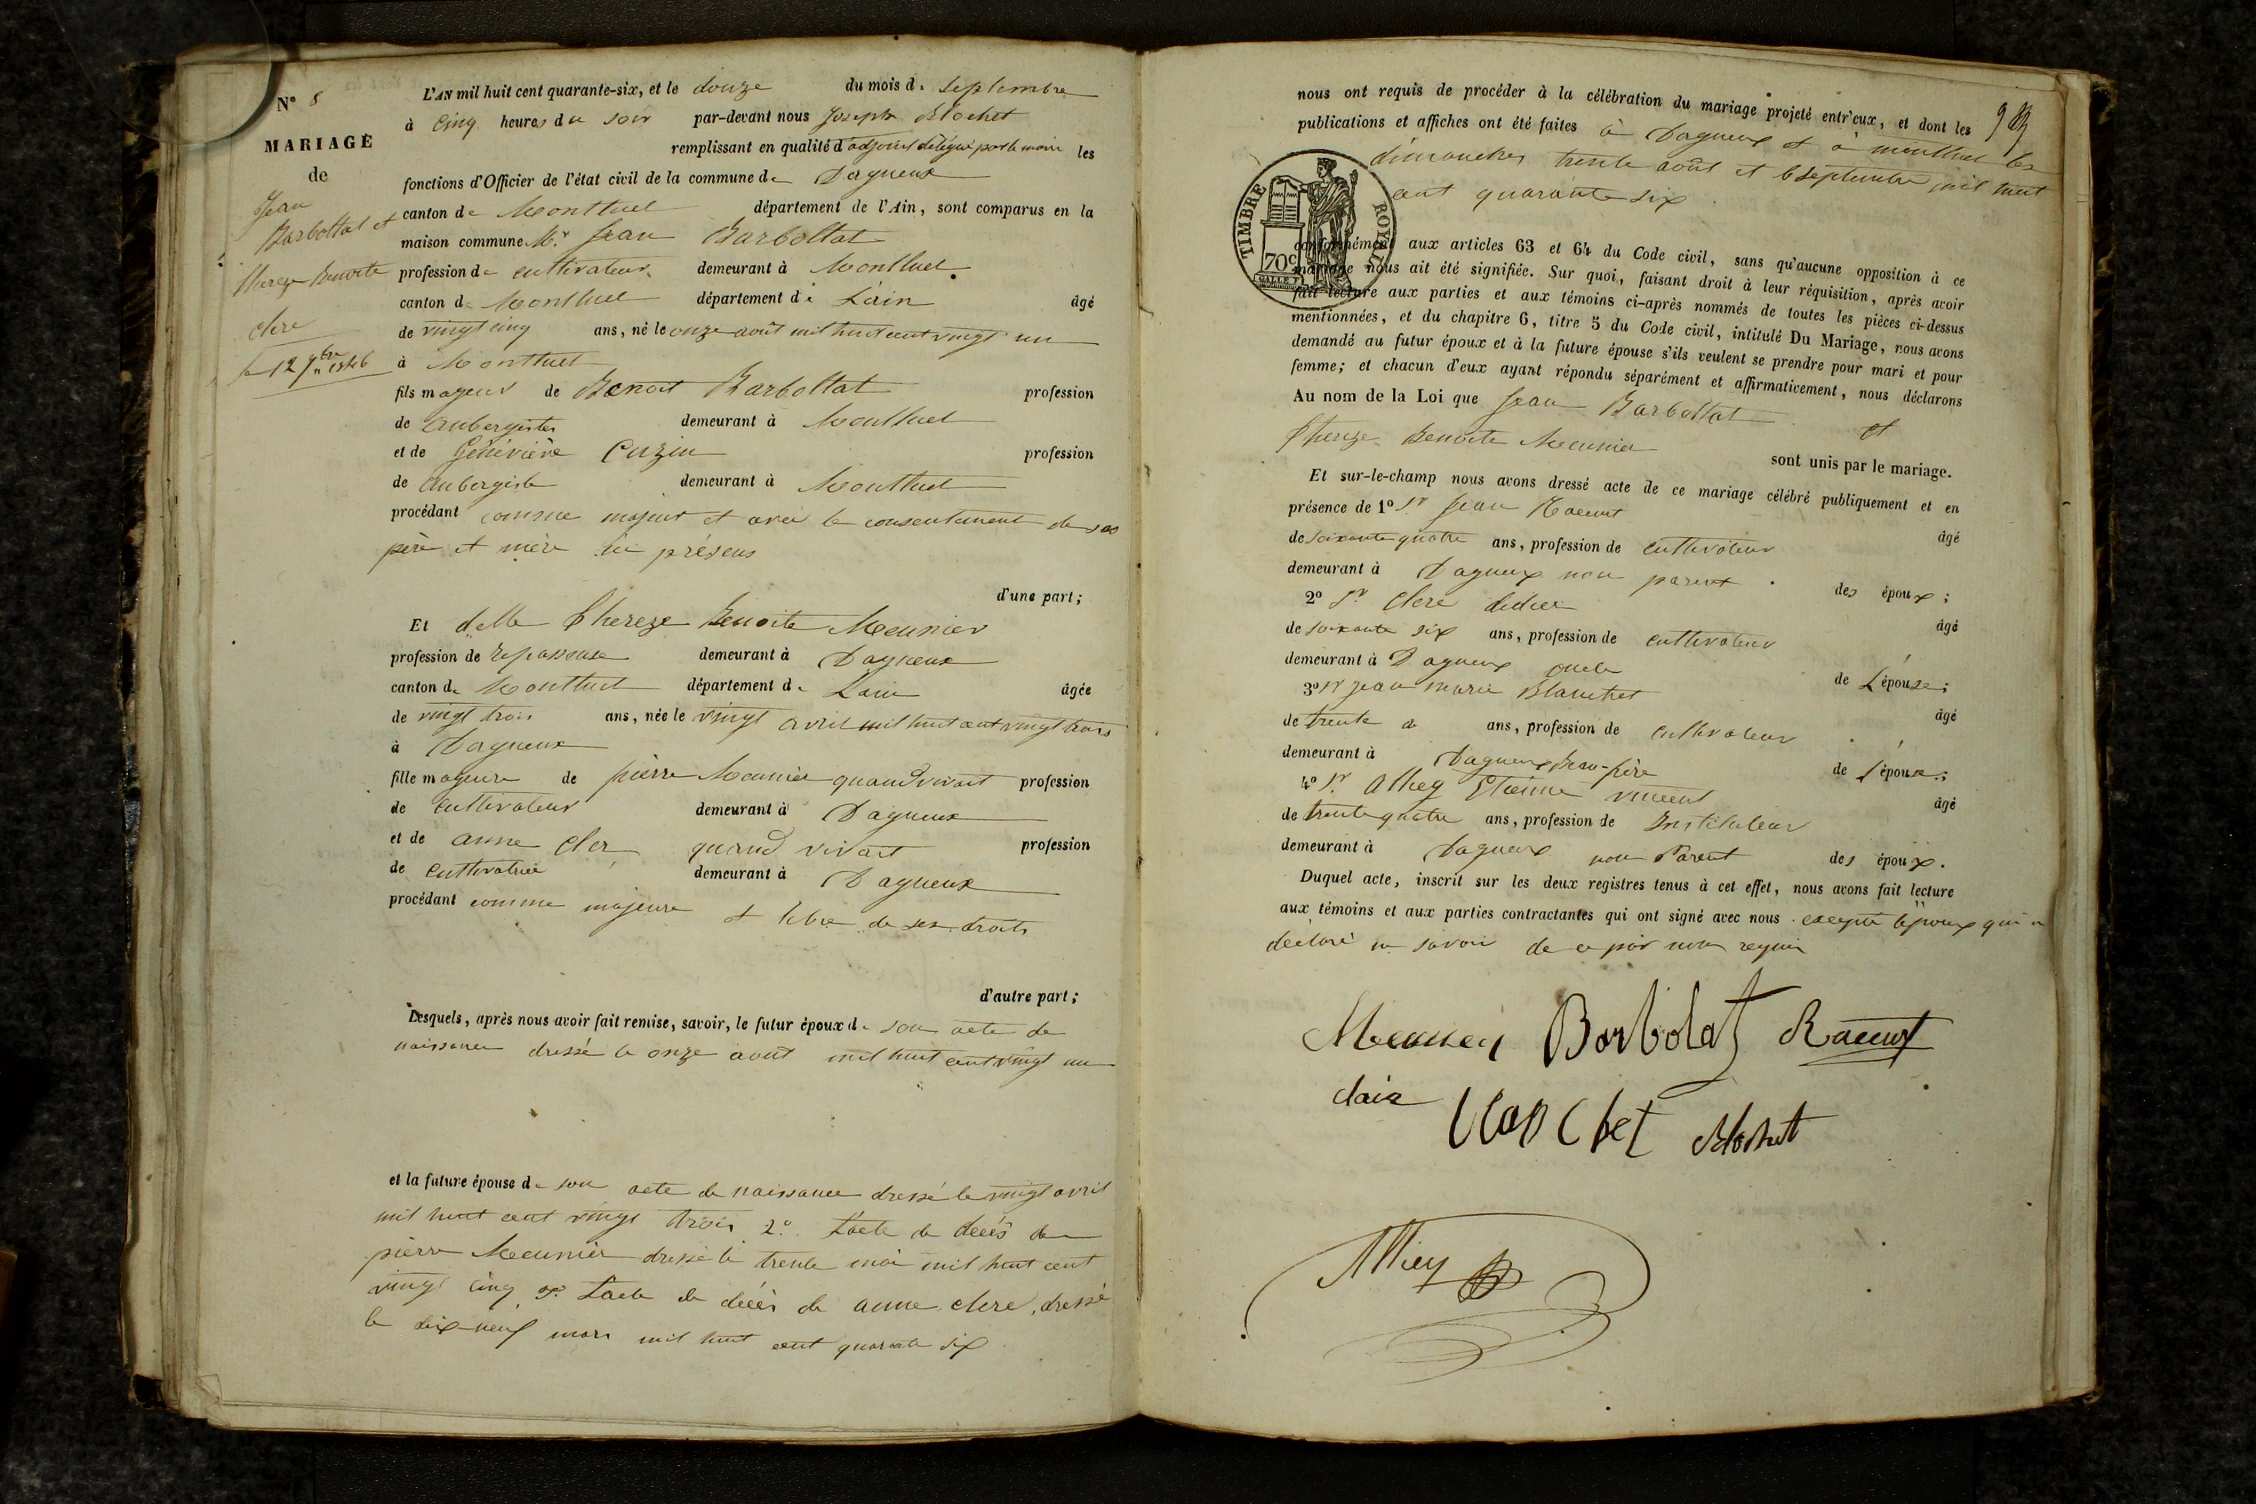 N° 8
MARIAGE
de
Jean
Barbollat et
Thereze Benoite
clerc
le 12 7bre 1846
L'AN mil huit cent quarante-six, et le douze du mois de septembre
à cinq heures du soir par-devant nous Joseph Blochet
remplissant en qualité d'adjoint délégué par le maire les
fonctions d'Officier de l'état civil de la commune de Dagneux
canton de Montluel département de l'Ain, sont comparus en la
maison commune Mr Jean Barbollat
profession de cultivateur demeurant à Montluel
canton de Montluel département de L'ain âgé
de vingt cinq ans, né le onze août mil huit cent vingt un
à Montluel
fils majeur de Benoit Barbollat profession
de aubergiste demeurant à Montluel
et de Géneviève Cuzin profession
de aubergiste demeurant à Montluel
procédant comme majeur et avec le consentement de ses
père et mère ici présens
d'une part;
Et delle Thereze Benoite Meunier
profession de repasseuse demeurant à Dagneux
canton de Montluel département de Lain âgée
de vingt trois ans, née le vingt avril mil huit cent vingt trois
à Dagneux
fille majeure de pierre Meunier quand vivait profession
de cultivateur demeurant à Dagneux
et de anne Clerc quand vivait profession
de cultivatrice demeurant à Dagneux
procédant comme majeure et libre de ses droits
d'autre part;
Lesquels, après nous avoir fait remise, savoir, le futur époux de son acte de
naissance dressé le onze aout mil huit cent vingt un
et la future épouse de son acte de naissance dressé le vingt avril
mil huit cent vingt trois 2° L'acte de décès de
pierre Meunier dressé le trente mai mil huit cent
vingt cinq 3° L'acte de décès de anne clerc, dressé
le dix neuf mars mil huit cent quarante six
nous ont requis de procéder à la célébration du mariage projeté entr'eux, et dont les
publications et affiches ont été faites à Dagneux et à montluel les
dimanches trente août et 6 septembre mil huit
cent quarante six
TIMBRE ROYAL
70c
conformément aux articles 63 et 64 du Code civil, sans qu'aucune opposition à ce
mariage nous ait été signifiée. Sur quoi, faisant droit à leur réquisition, après avoir
fait lecture aux parties et aux témoins ci-après nommés de toutes les pièces ci-dessus
mentionnées, et du chapitre 6, titre 5 du Code civil, intitulé Du Mariage, nous avons
demandé au futur époux et à la future épouse s'ils veulent se prendre pour mari et pour
femme; et chacun d'eux ayant répondu séparément et affirmativement, nous déclarons
Au nom de la Loi que Jean Barbollat et
Thereze Benoite Meunier
sont unis par le mariage.
Et sur-le-champ nous avons dressé acte de ce mariage célébré publiquement et en
présence de 1° Sr Jean Racurt
de soixante quatre ans, profession de cultivateur âgé
demeurant à Dagneux non parent des époux;
2° Sr Clerc didier
de soixante six ans, profession de cultivateur âgé
demeurant à Dagneux oncle de L'épouse;
3° Sr jean marie Blanchet
de trente ans, profession de cultivateur âgé
demeurant à Dagneux Beau-frère de l'épouse;
4° Sr Etienne vincent
de trente quatre ans, profession de Instituteur âgé
demeurant à Dagneux non Parent des époux.
Duquel acte, inscrit sur les deux registres tenus à cet effet, nous avons fait lecture
aux témoins et aux parties contractantes qui ont signé avec nous excepté l'époux qui a
déclaré ne savoir de ce par nous requis
Meunier Borbolat Racurt
clair
blanchet Blochet